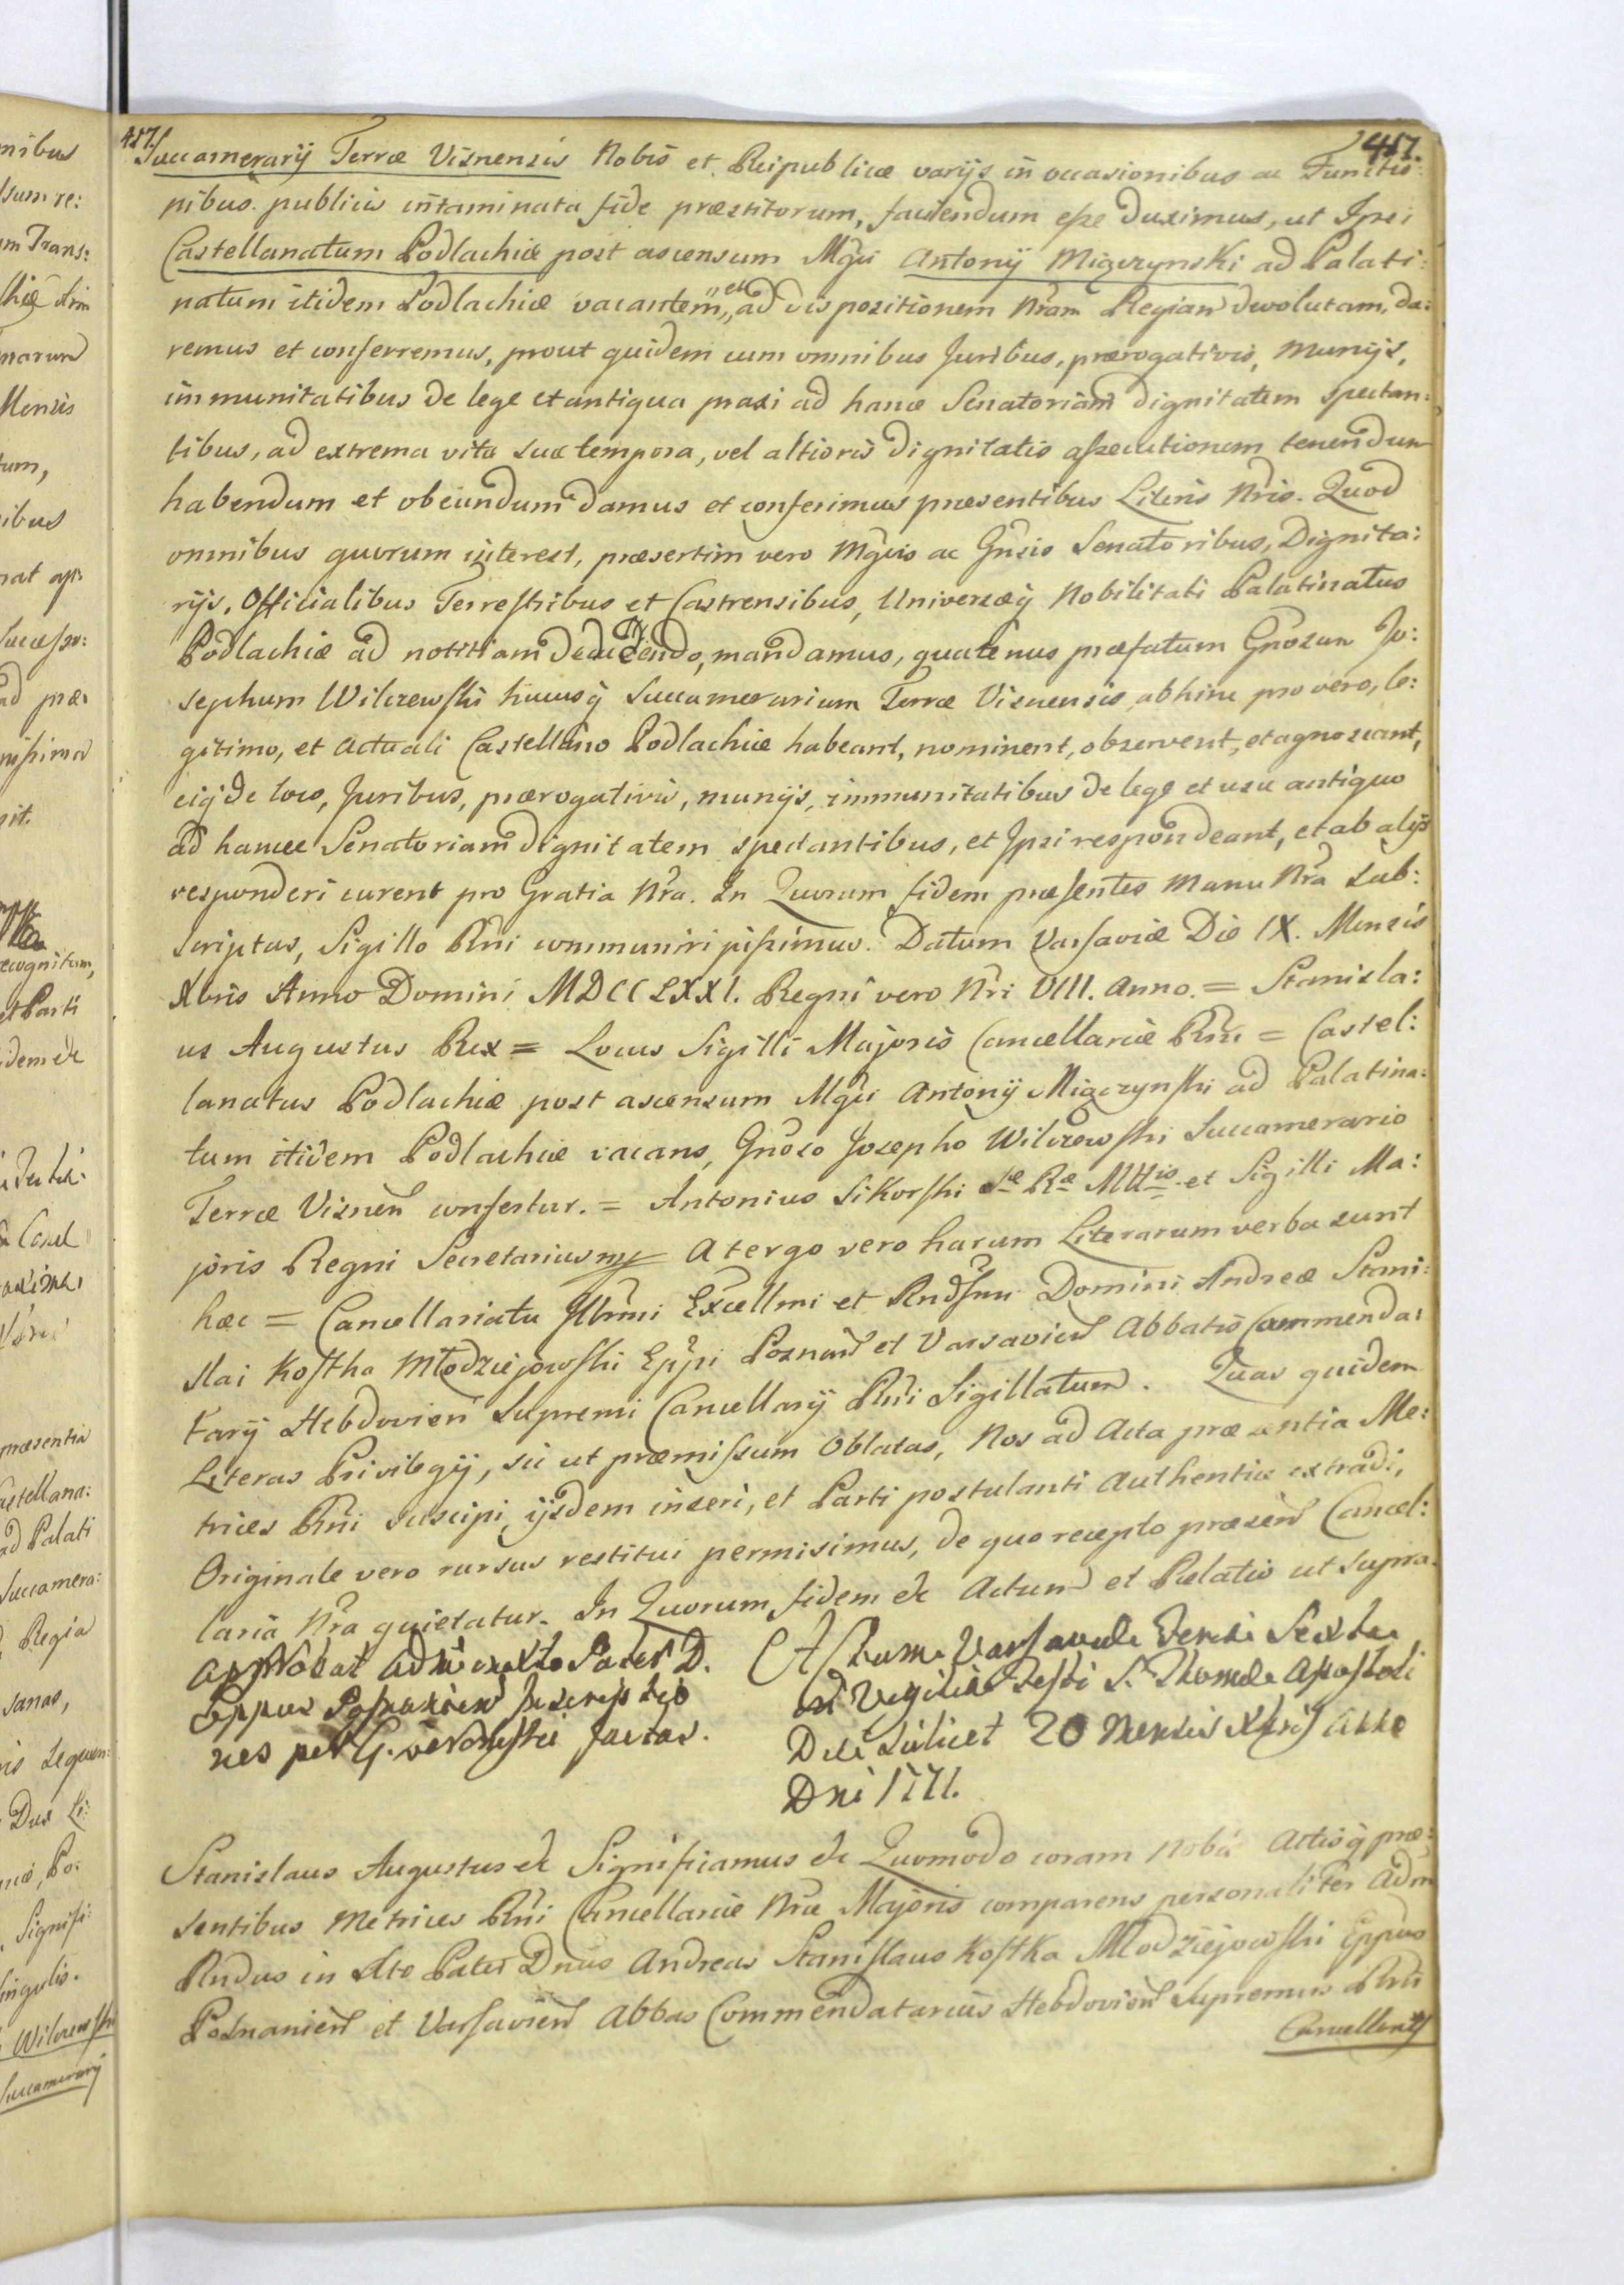 457. 457.
Succamerarij Terræ Visnensis Nobis et Reipublicæ varijs in occasionibus ac Functio:
nibus publicis intaminata fide præstitorum, faciendum esse duximus, ut Ipsi
Castellanatum Podlachiæ post ascensum Mgci Antonij Miączynski ad Palati:
natum itidem Podlachiæ vacantem, et ad dispositionem Nram Regiam devolutam, da:
remus et conferremus, prout quidem cum omnibus Juribus, prærogativis, Munijs,
immunitatibus de lege et antiqua praxi ad hanc Senatoriam dignitatem spectan:
tibus, ad extrema vitæ suæ tempora, vel altioris dignitatis assecutionem tenendum
habendum et obeundum damus et conferimus præsentibus Literis Nris. Quod
omnibus quorum interest, præsertim vero Mgcis ac Gnsis Senatoribus, Dignita:
rijs, Officialibus Terrestribus et Castrensibus, Universæq Nobilitati Palatinatus
Podlachiæ ad notitiam deducendo, mandamus, quatenus præfatum Gnosum Jo:
sephum Wilczewski hucusq Succamerarium Terræ Visnensis, abhinc pro vero, le:
gitimo, et actuali Castellano Podlachiæ habeant, nominent, observent, et agnoscant,
eiq de loco, Juribus, prærogativis, munijs, immunitatibus de lege et usu antiquo
ad hancce Senatoriam dignitatem spectantibus, et Ipsi respondeant, et ab alijs
responderi curent pro Gratia Nra. In Quorum fidem præsentes Manu Nra sub:
scriptas, Sigillo Rni communiri jussimus. Datum Varsaviæ Die IX. Mensis
Xbris Anno Domini MDCCLXXI. Regni vero Nri VIII. Anno. = Stanisla:
us Augustus Rex = Locus Sigilli Majoris Cancellariæ Rni = Castel:
lanatus Podlachiæ post ascensum Mgci Antonij Miączynski ad Palatina:
tum itidem Podlachiæ vacans, Gnoso Josepho Wilczewski Succamerario
Terræ Visnen confertur. = Antonius Sikorski Sæ Ræ Mttis et Sigilli Ma:
joris Regni Secretarius mp A tergo vero harum Literarum verba sunt
hæc = Cancellariatu Illrmi Excellmi et Rndssmi Domini Andreæ Stani:
slai Kostka Młodziejowski Eppi Posnan et Varsavien Abbatis Commenda:
tarij Hebdovien Supremi Cancellarij Rni Sigillatum. Quas quidem
Literas Privilegij, sic ut præmissum Oblatas, Nos ad Acta præsentia Me:
trices Rni suscipi, ijsdem inseri, et Parti postulanti Authentice extradi,
Originale vero rursus restitui permisimus, de quo recepto præsen Cancel:
laria Nra quietatur. In Quorum fidem etc Actum et Relatio ut supra.
approbat Adm in Xto Pater D.
Eppus Posnanien Inscriptio
nes per G. factas.
Actum Varsaviæ Feria Sexta
in Vigilia Festi S. Thomæ Apostoli
Die scilicet 20 Mensis Xbris Anno
Dni 1771.
Stanislaus Augustus etc Significamus etc Quomodo coram Nobis Actisq præ:
sentibus Metrices Rni Cancellariæ Nræ Majoris comparens personaliter Adm
Rndus in Xto Pater Dnus Andreas Stanislaus Kostka Młodziejowski Eppus
Posnanien et Varsavien Abbas Commendatarius Hebdovien Supremus Rni
Cancellarius